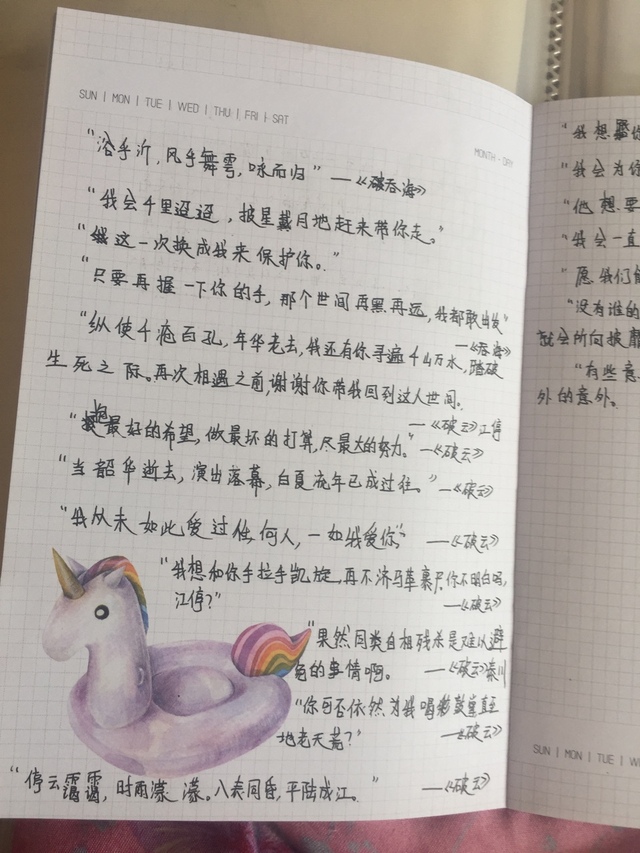 SUN | MON | TUE | WED | THU | FRI | SAT
MONTH - DAY
“浴乎沂,风乎舞雩,咏而归” ——《破吞海》
“我会千里迢迢,披星戴月地赶来带你走。”
“我这一次换成我来保护你。”
“只要再握一下你的手,那个世间再黑再远,我都敢出发”
——《吞海》
“纵使千疮百孔,年华老去,我还有你寻遍千山万水,踏破
生死之际。再次相遇之前,谢谢你带我回到这人世间。
——《破云》江停
“抱最好的希望,做最坏的打算,尽最大的努力。” ——《破云》
“当韶华逝去,演出落幕,白夏流年已成过往。” ——《破云》
“我从未如此爱过任何人,一如我爱你” ——《破云》
“我想和你手拉手凯旋,再不济马革裹尸,你不明白吗,
江停?” ——《破云》
“果然同类自相残杀是难以避
免的事情啊。 ——《破云》秦川
“你可否依然为我唱彩鼓掌直至
地老天荒? ——《破云》
“停云霭霭,时雨濛濛。八表同昏,平陆成江。” ——《破云》
“我想
“我会为你
“他想要
“我会一直
“愿我们
“没有谁的
就会所向披靡
“有些意
外的意外。
SUN | MON | TUE | WE